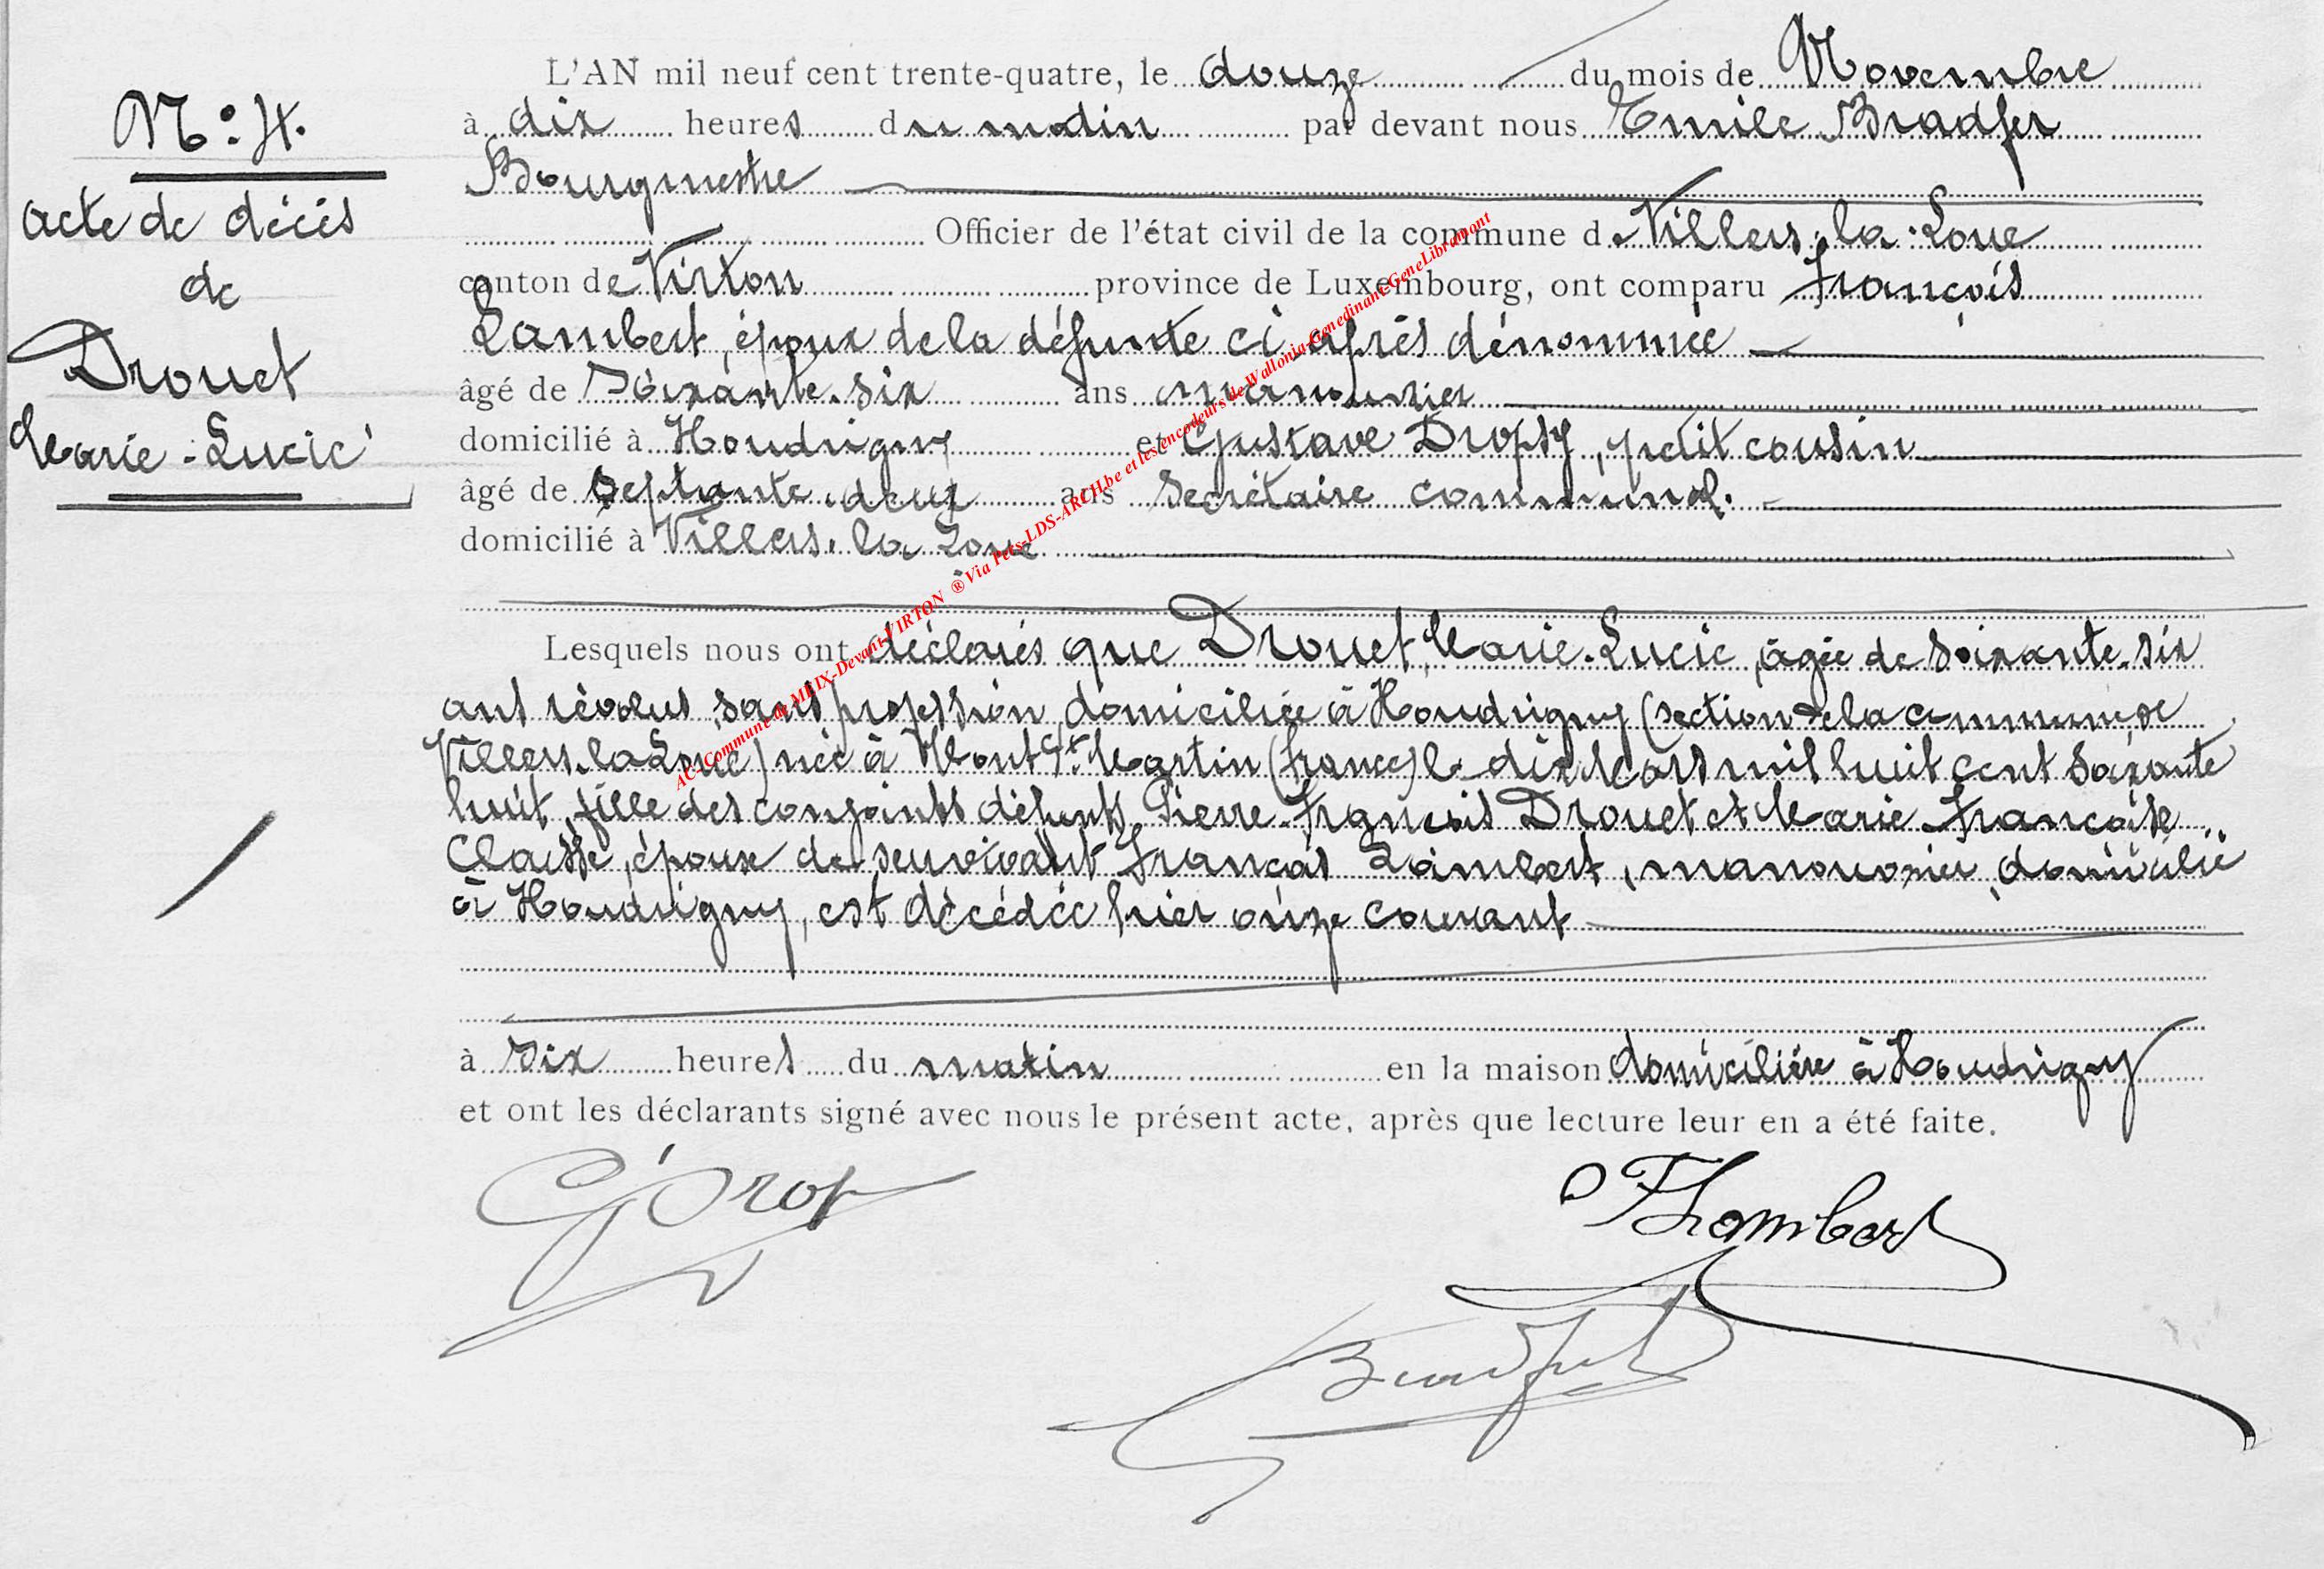 N° 4.
Acte de décès
de
Drouet
Marie-Lucie
L'AN mil neuf cent trente-quatre, le douze du mois de Novembre
à dix heures du matin par devant nous Emile Bradfer
Bourgmestre
Officier de l'état civil de la commune de Villers-la-Loue
canton de Virton province de Luxembourg, ont comparu François
Lambert, époux de la défunte ci après dénommée
âgé de soixante-six ans manouvrier
domicilié à Houdrigny et Gustave Dropsy, petit cousin
âgé de septante-deux ans secrétaire communal.
domicilié à Villers-la-Loue
Lesquels nous ont déclarés que Drouet, Marie-Lucie, âgée de soixante-six
ans révolus, sans profession, domiciliée à Houdrigny (section de la commune de
Villers-la-Loue) née à Mont St. Martin (France) le dix Mars mil huit cent soixante
huit, fille des conjoints défunts Pierre-François Drouet et Marie-Françoise
Claisse, épouse de survivant François Lambert, manouvrier, domicilié
à Houdrigny, est décédée hier onze courant
à six heures du matin en la maison domicilière à Houdrigny
et ont les déclarants signé avec nous le présent acte, après que lecture leur en a été faite.
G Drop
F Lambert
Bradfer
AC-Commune de MEIX-Devant-VIRTON ® Via Pets-LDS-ARCH.be et les encodeurs de Wallonia-Genedinant-GeneLibramont